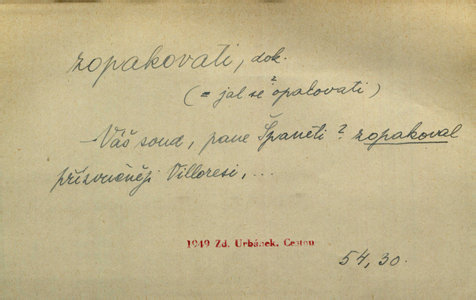 zopakovati, dok.
(= jal se ? opakovati)
Váš soud, pane Španěti ? zopakoval
přízvučněji Villoresi, ...
1949 Zd. Urbánek. Cestou
54, 30.